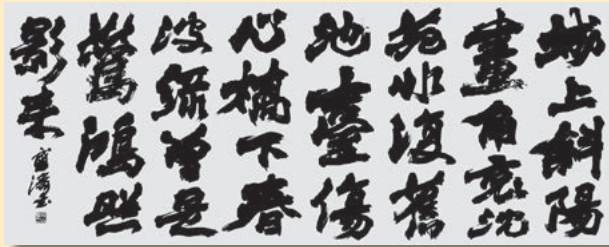 城上斜陽
畫角哀沈
苑非復舊
池臺傷
心橋下春
波綠曾是
驚鴻照
影来